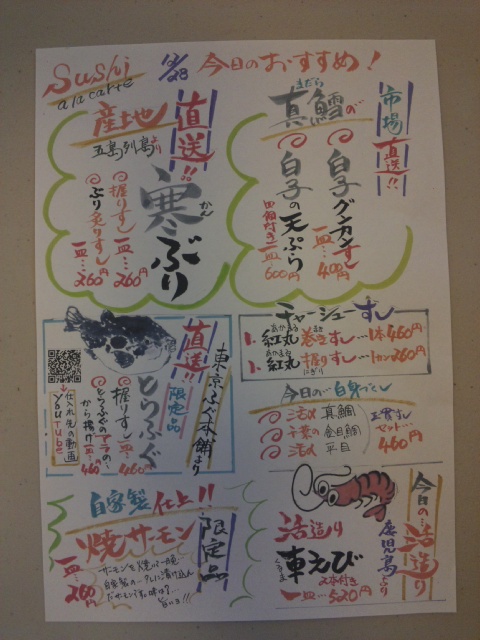 Sushi
a la carte
12/28
今日のおすすめ!
市場直送!!
まだら
真鱈の
白子グンカンすし
一皿…400円
白子の天ぷら
四個付き
一皿…600円
産土地直送!!
五島列島より
寒ぶり
かん
握りすし
一皿…260円
ぶり炙りすし
一皿…260円
チャーシューすし
1. 紅丸巻きすし…1本460円
あかまる
まき
1. 紅丸握りすし…1カン260円
あかまる
にぎり
東京ふぐ本舗より
直送!!
限定品
とらふぐ
握りすし
一皿…460
とらふぐのアラの…
から揚げ一皿…460
仕入れ先の動画
YouTube
今日の…白身づくし
活〆 真鯛
千葉の 金目鯛
活〆 平目
セット…
460円
今日の…活造り
鹿児島より
活造り
車えび
くるま
2本付き
一皿…520円
自家製仕上!!
限定品
焼サーモン
一皿…260円